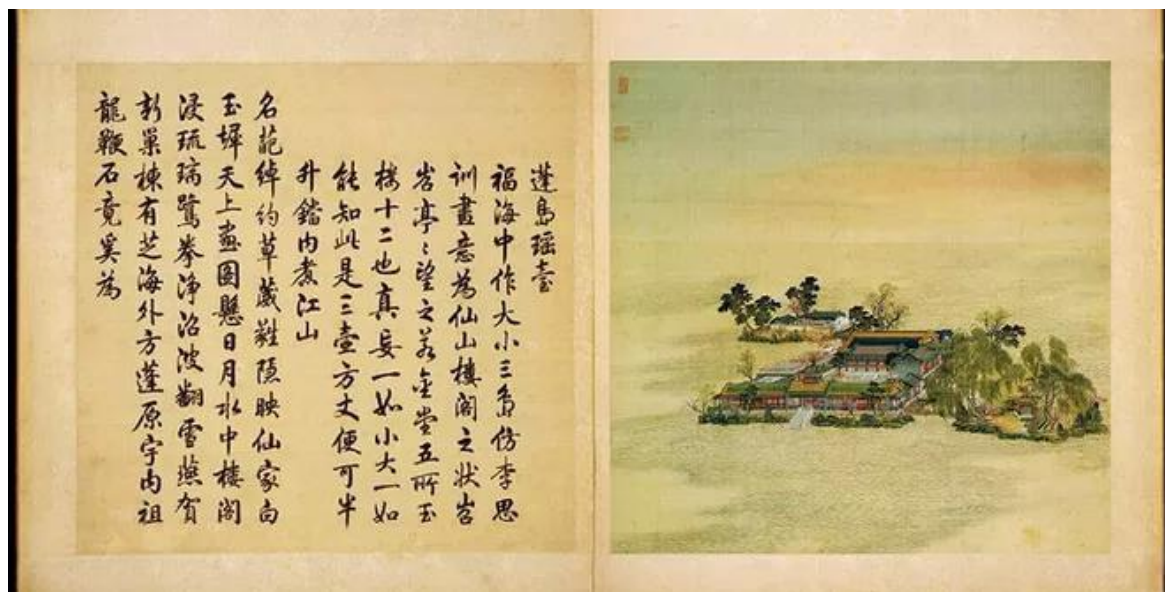 蓬島瑶臺
福海中作大小三島倣李思
訓畫意為仙山樓閣之狀岧
岧亭亭望之若金堂五所玉
樓十二也真妄一如小大一如
能知此是三壺方丈便可半
升鐺内煮江山
名葩綽約草葳蕤隱映仙家白
玉墀天上畫圖懸日月水中樓閣
浸琉璃鷺拳淨沼波翻雪燕賀
新巢棟有芝海外方蓬原宇内祖
龍鞭石竟奚為